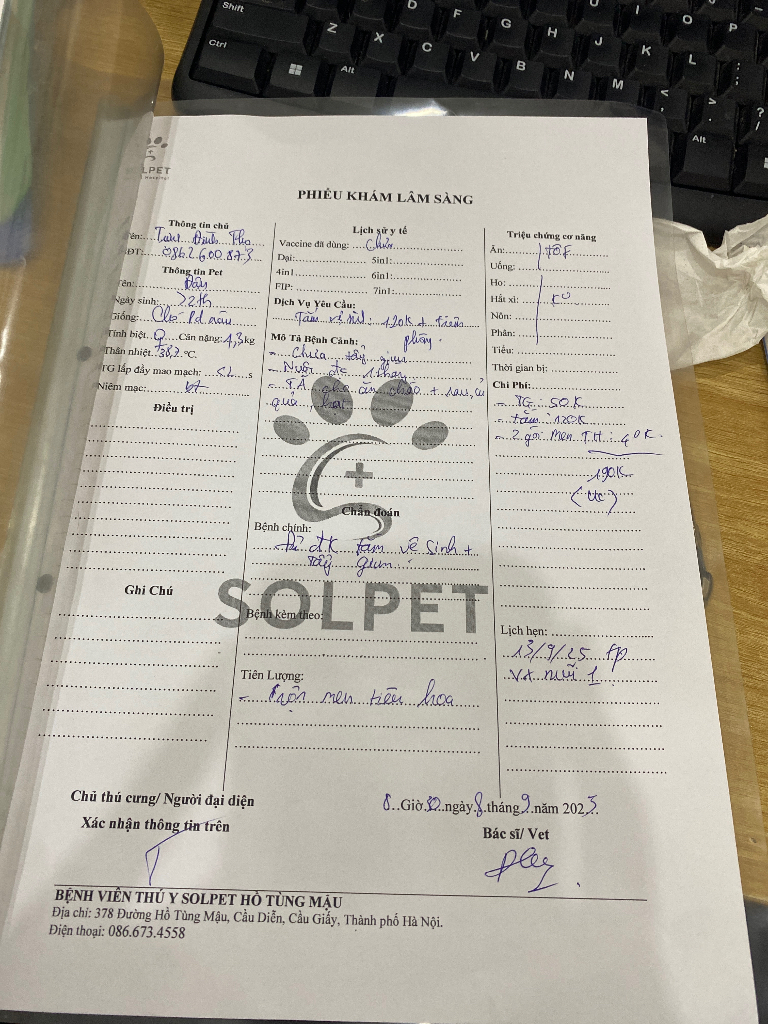 SOLPET
PHIẾU KHÁM LÂM SÀNG
Thông tin chủ
Tên:
SĐT: 0862600873
Thông tin Pet
Tên: Đậu
Ngày sinh: >2th
Giống: Chó Pd nâu
Tính biệt: Cân nặng: 1,3 kg
Thân nhiệt: 38,7 °C.
TG lấp đầy mao mạch: <2 s
Niêm mạc: bt
Điều trị
Ghi Chú
Lịch sử y tế
Vaccine đã dùng: Chưa
Dại: 5in1:
4in1 6in1:
FIP: 7in1:
Dịch Vụ Yêu Cầu:
Tắm vệ sinh: 120K + tiêm
phòng.
Mô Tả Bệnh Cảnh:
- Chưa tẩy giun
- Nuôi đc
- TĂ cho ăn cháo + rau, củ
quả, hạt
Chẩn đoán
Bệnh chính:
Đủ đk tắm vệ sinh +
tẩy giun
SOLPET
Bệnh kèm theo:
Tiên Lượng:
- trộn men tiêu hoá
Triệu chứng cơ năng
Ăn:
Uống:
Ho:
Hắt xì: K0
Nôn:
Phân:
Tiểu:
Thời gian bị:
Chi Phí:
- TG: 50K
- tắm: 120K
- 2 gói men T.H: 40K.
190K
Lịch hẹn:
13/9/25
VX mũi 1
Chủ thú cưng/ Người đại diện
Xác nhận thông tin trên
8 Giờ 30 ngày 8 tháng 9 năm 2025
Bác sĩ/ Vet
BỆNH VIỆN THÚ Y SOLPET HỒ TÙNG MẬU
Địa chỉ: 378 Đường Hồ Tùng Mậu, Cầu Diễn, Cầu Giấy, Thành phố Hà Nội.
Điện thoại: 086.673.4558